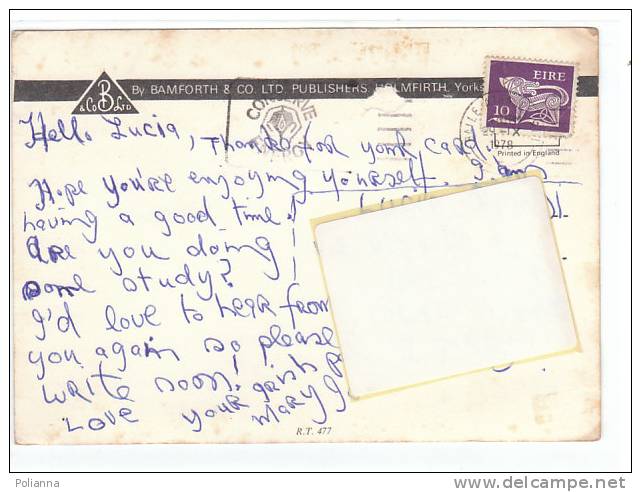 B
& Co LTD
By BAMFORTH & CO. LTD. PUBLISHERS, HOLMFIRTH, Yorks
EIRE
10
CONSERVE
IX
1978
Printed in England
Hello Lucia, Thanks for your card
Hope you're enjoying yourself. I am
having a good time!
Are you doing
some study?
I'd love to hear from
you again so please
write soon!
Love your Irish
Mary
R.T. 477
Polianna
www.delcampe.net